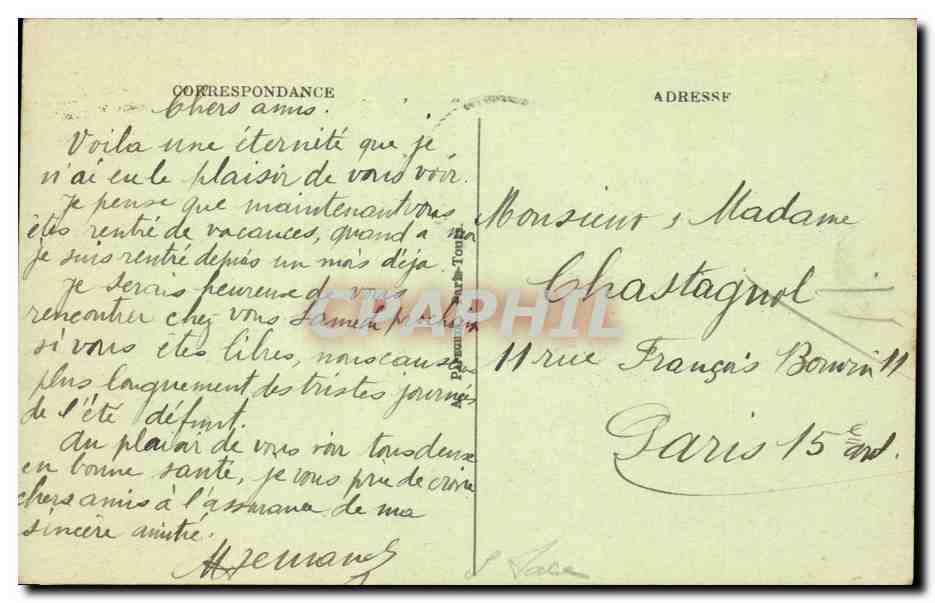 CORRESPONDANCE
Chers amis.
Voila une éternité que je
n'ai eu le plaisir de vous voir.
Je pense que maintenant vous
êtes rentré de vacances, quand a moi
je suis rentré depuis un mois déja.
Je serais heureuse de vous
rencontrer chez vous Samedi prochain
si vous etes libres, nous causerons
plus longuement des tristes journées
de l'été défunt.
Au plaisir de vous voir tous deux
en bonne santé, je vous prie de croire
chers amis à l'assurance de ma
sincère amitié.
ADRESSE
Monsieur, Madame
Chastagnol
11 rue François Bonvin 11
Paris 15e ard.
CPAPHIL